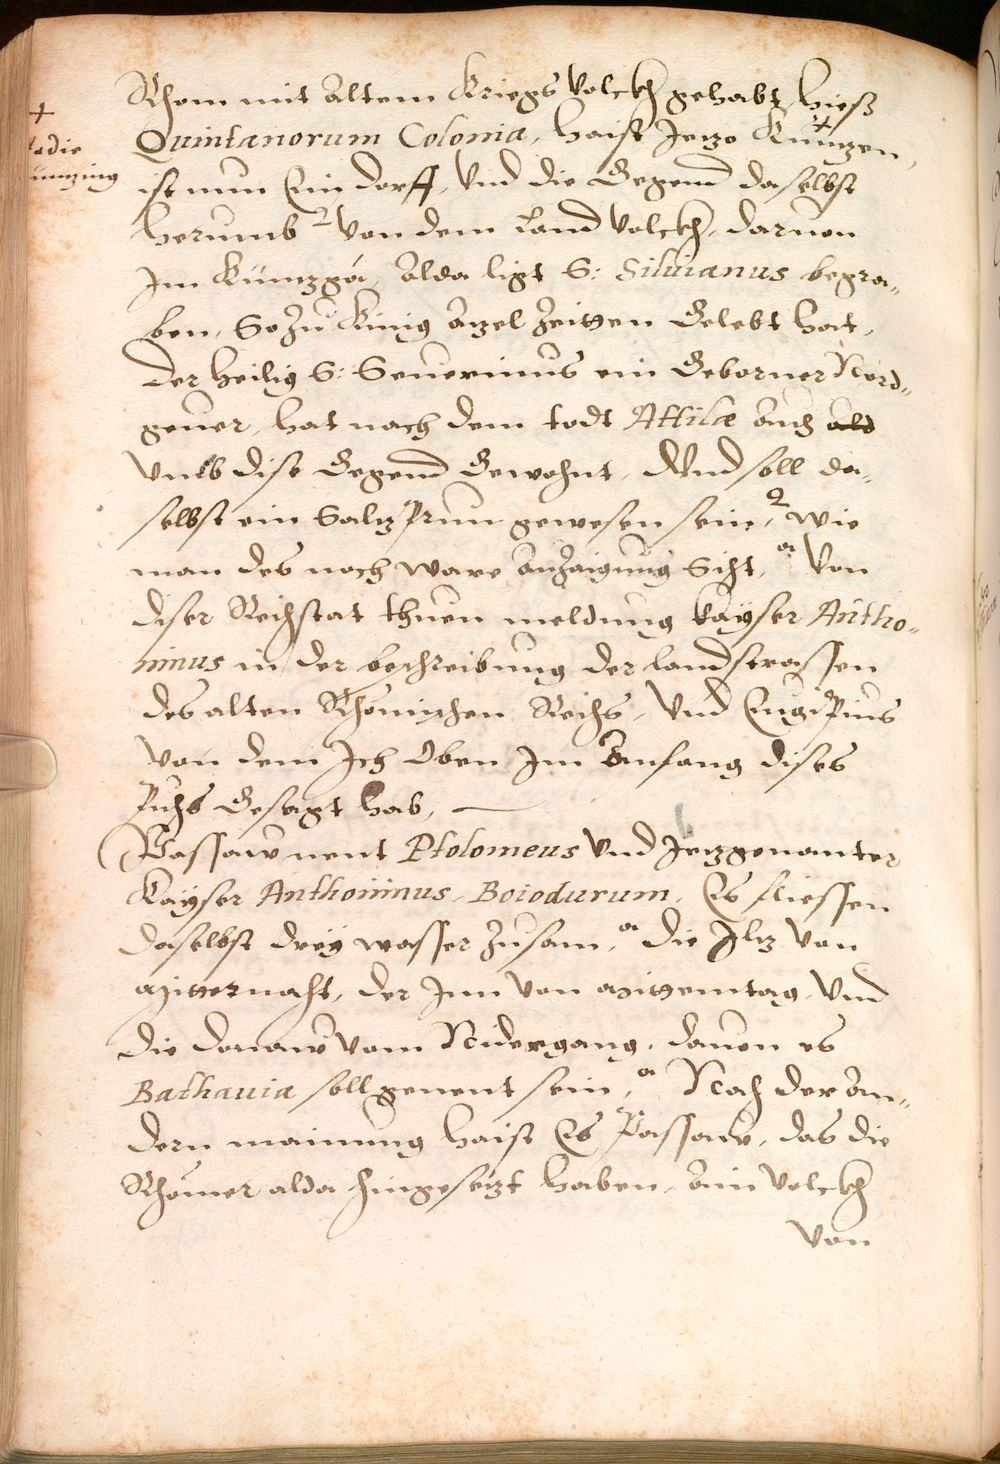 Rhom mit altem Kriegs Volckh gehabt, hieß
+
Quintanorum Colonia, haist Jezo Küntzen,
adie
umzing
ist nun Ein dorff, Vnd die Gegend daselbst
herumb von dem Land Volckh, daruon
Im Küntzgä, Alda ligt S: Siluianus begra„
ben, So zu Künig Azel Zeitten Gelebt hat,
Der heilig S: Seuerinus ein Geborner Nord„
geuer, hat nach dem todt Attilæ auch
Vmb dise Gegend Gewohnt, Vnd soll da„
selbst ein Saltz Prun gewesen sein, wie
man des noch ware anzaigung Siht, Von
diser Reichstat thuen meldung kayser Antho„
ninus in der beschreibung der landstrassen
des alten Rhömischen Reichs, Vnd Eugipius
Von dem Ich Oben Im Anfang dises
Puchs Gesagt hab,
Passaw nent Ptolomeus Vnd Jetzgenanter
Kayser Anthoninus, Boiodurum, Es fliessen
daselbst drey wasser Zusam, die Iltz Von
Mitternacht, der Inn Von Mittemtag, Vnd
die donaw Vom Nidergang, dauon es
Bathauia soll genent sein, Nach der an„
dern mainung haist Es Passaw, das die
Rhömer alda hingesetzt haben, ain Volckh
Von